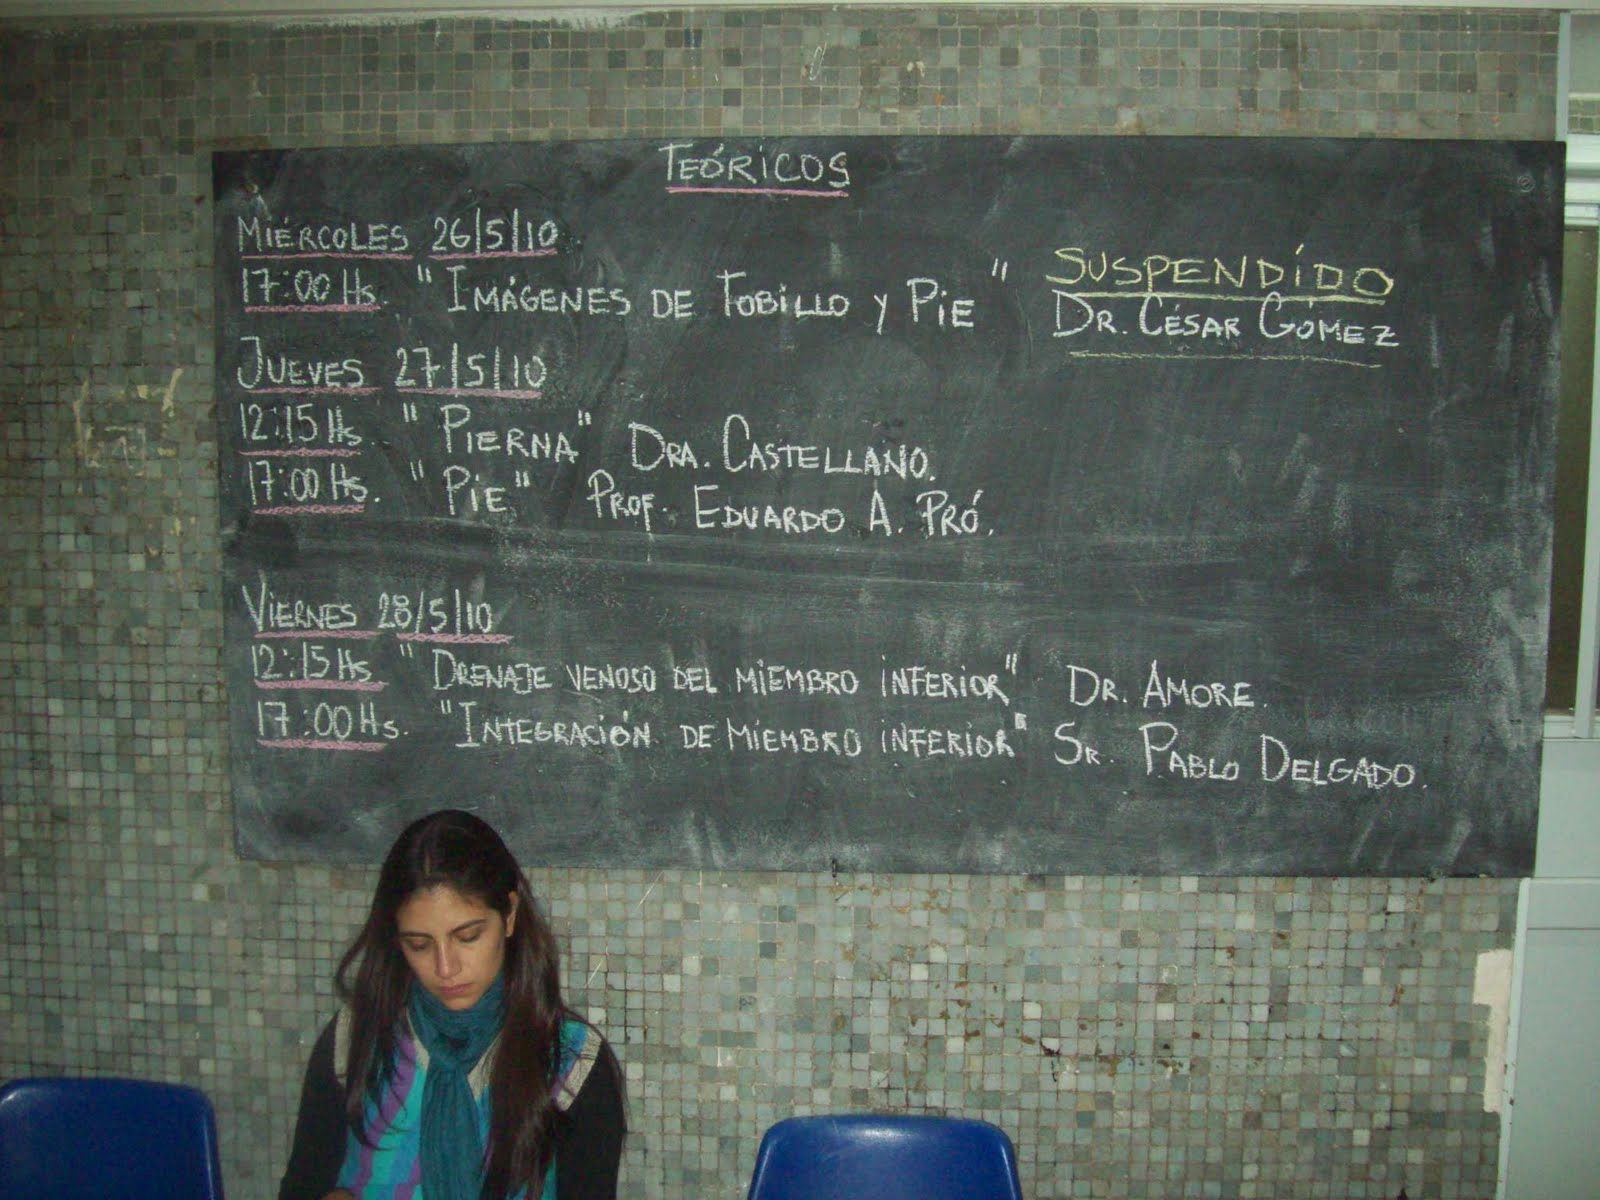 TEÓRICOS
MIÉRCOLES 26/5/10
17:00 Hs. "IMÁGENES DE TOBILLO Y PIE" SUSPENDIDO
DR. CÉSAR GÓMEZ
JUEVES 27/5/10
12:15 Hs "PIERNA" DRA. CASTELLANO.
17:00 Hs. "PIE" PROF. EDUARDO A. PRÓ.
VIERNES 28/5/10
12:15 Hs "DRENAJE VENOSO DEL MIEMBRO INFERIOR" DR. AMORE.
17:00 Hs. "INTEGRACIÓN DE MIEMBRO INFERIOR" SR. PABLO DELGADO.